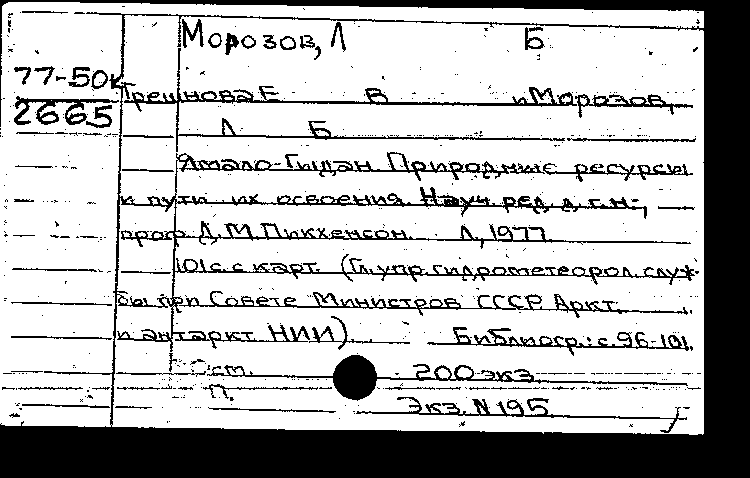 Морозов, Л Б
77-50к
2665
Трешнова Е В и Морозов,
Л Б
Ямало-Гыдан. Природные ресурсы
и пути их освоения. Науч. ред. д.г.н.,
проф. Д.М. Пикхенсон. Л., 1977.
101 с. с карт. (Гл. упр. гидрометеорол. служ-
бы при Совете Министров СССР. Аркт.
и антаркт. НИИ). Библиогр.: с. 96-101.
Ост. 200 экз.
П. Экз. N 195